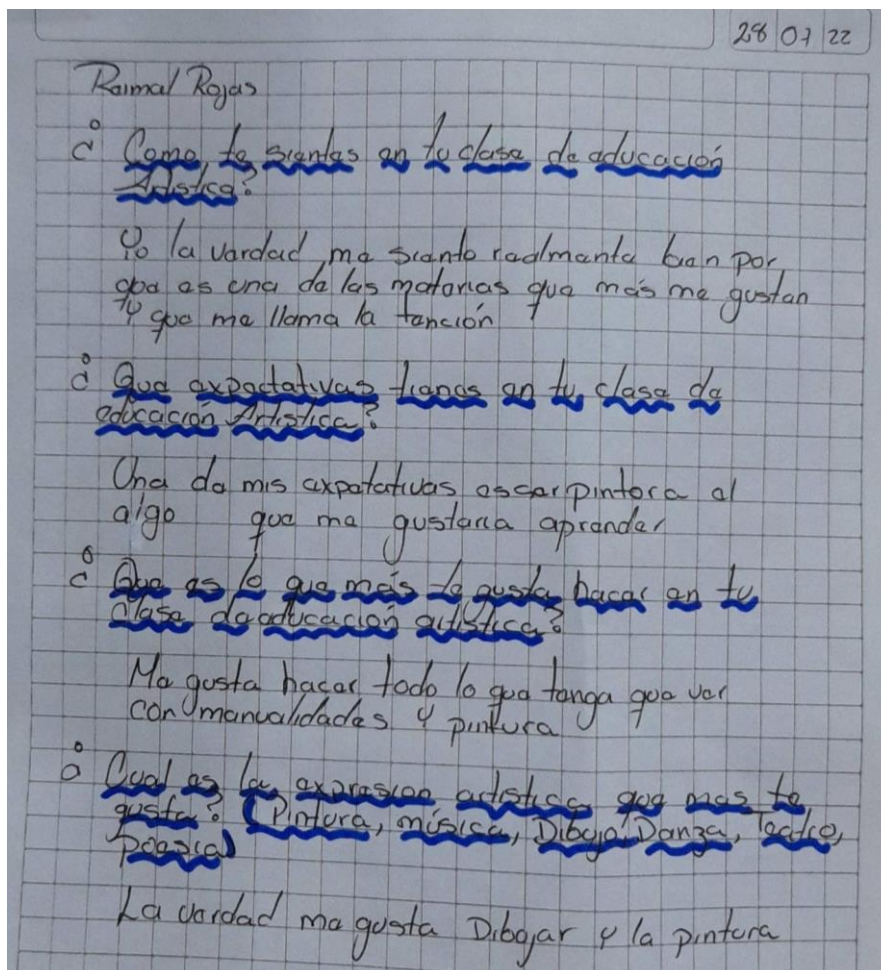 28 07 22
Raimal Rojas
¿ Como te sientes en tu clase de educación
Artistica?
Yo la verdad me siento realmente bien por
que es una de las materias que más me gustan
y que me llama la tención
¿ Que expectativas tienes en tu clase de
educación Artistica?
Una de mis expetativas es ser pintora al
algo que me gustaria aprender
¿ Que es lo que más te gusta hacer en tu
clase de educación artística?
Me gusta hacer todo lo que tenga que ver
con manualidades y pintura
¿ Cual es la expresion artistica que mas te
gusta? (Pintura, música, Dibujo, Danza, Teatro,
Poesia)
La verdad me gusta Dibujar y la pintura